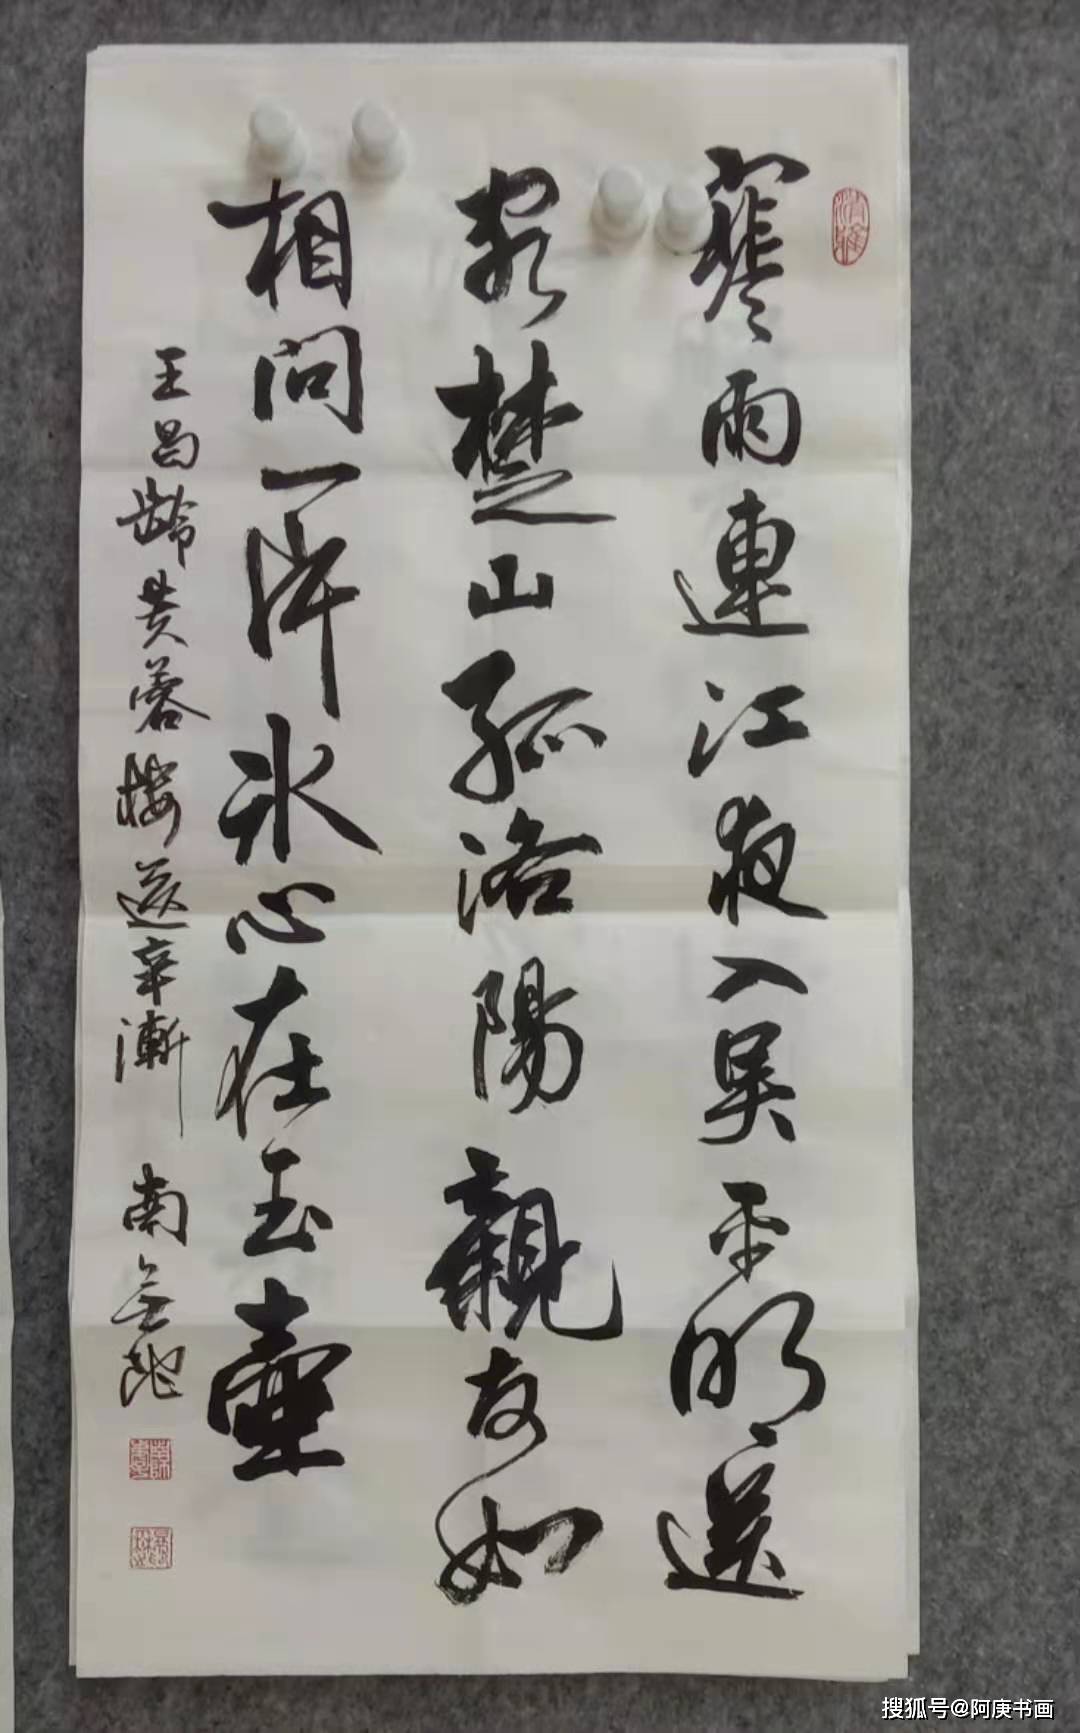 寒雨連江夜入吴平明送
客楚山孤洛陽親友如
相問一片冰心在玉壺
王昌龄芙蓉楼送辛漸 南
搜狐号@阿庚书画